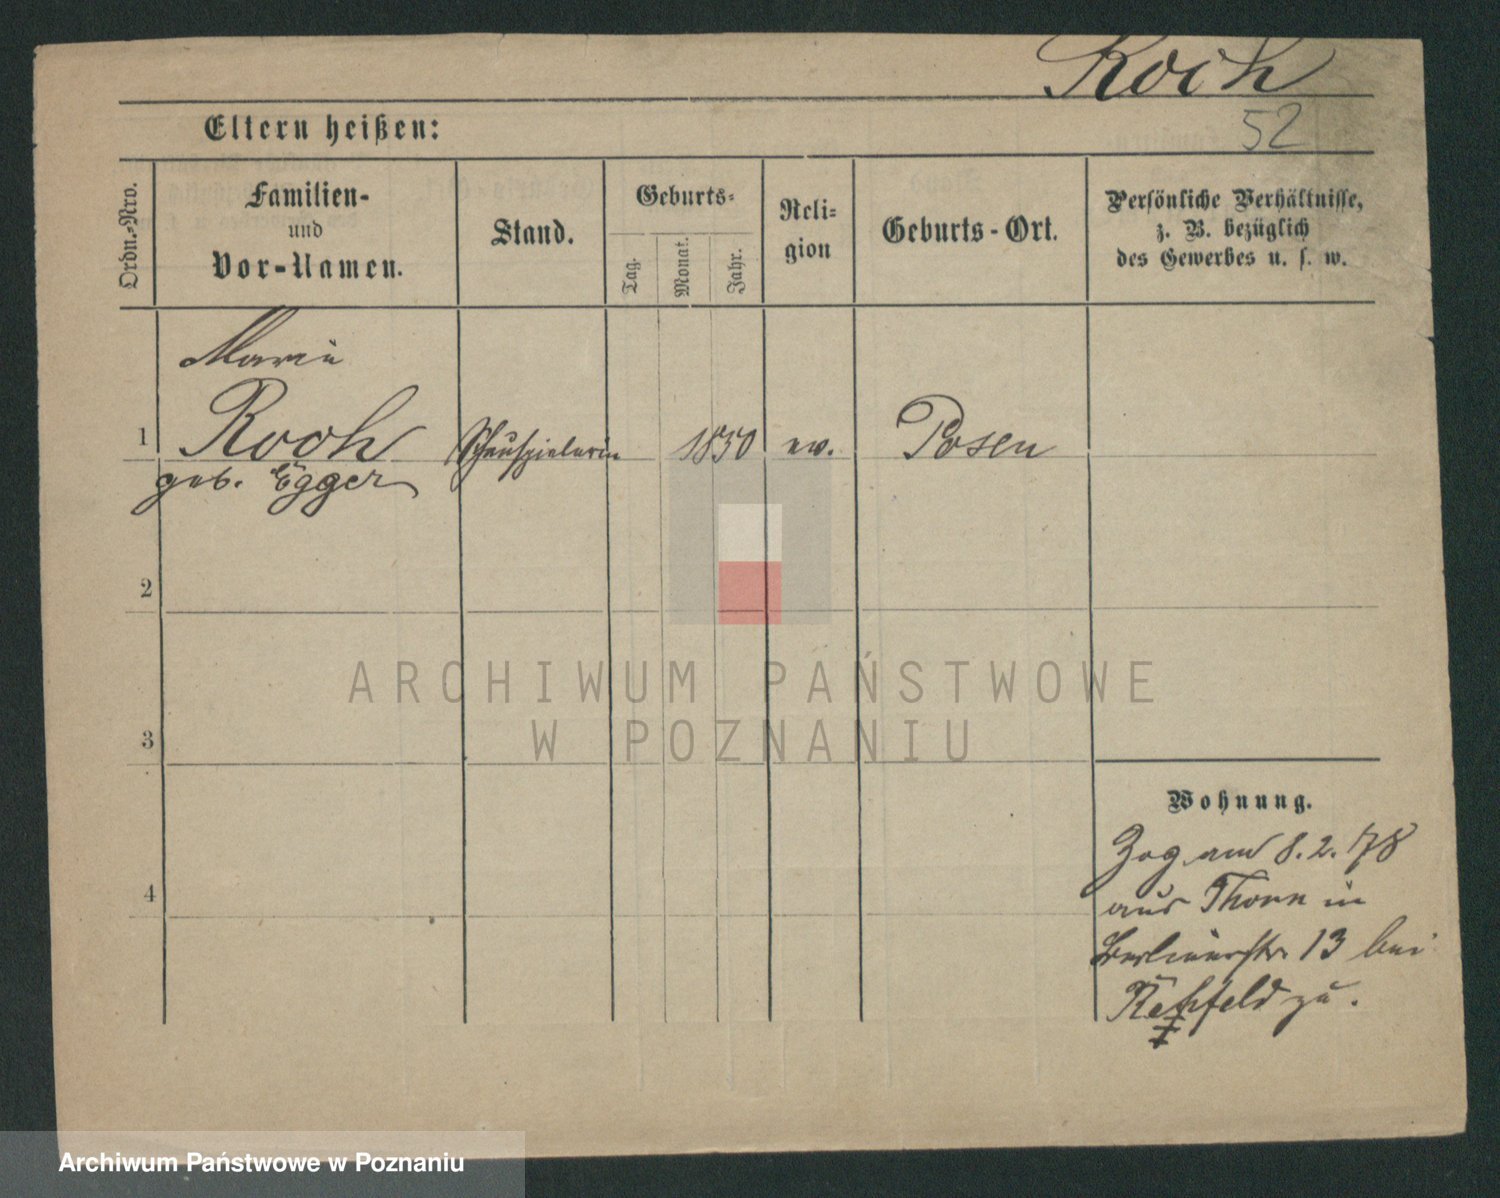 Koch
52
Eltern heißen:
Ordn.-Nro.
Familien-
und
Vor-Namen.
Stand.
Geburts-
Tag.
Monat.
Jahr.
Reli-
gion
Geburts-Ort.
Persönliche Verhältnisse,
z. B. bezüglich
des Gewerbes u. s. w.
Marie
1 Koch Schauspielerin 1850 ev. Posen
geb. Egger
2
3
4
Wohnung.
Zog am 8. 2. 78
aus Thorn in
Berlinerstr. 13 bei
Rehfeld zu.
ARCHIWUM PAŃSTWOWE
W POZNANIU
Archiwum Państwowe w Poznaniu